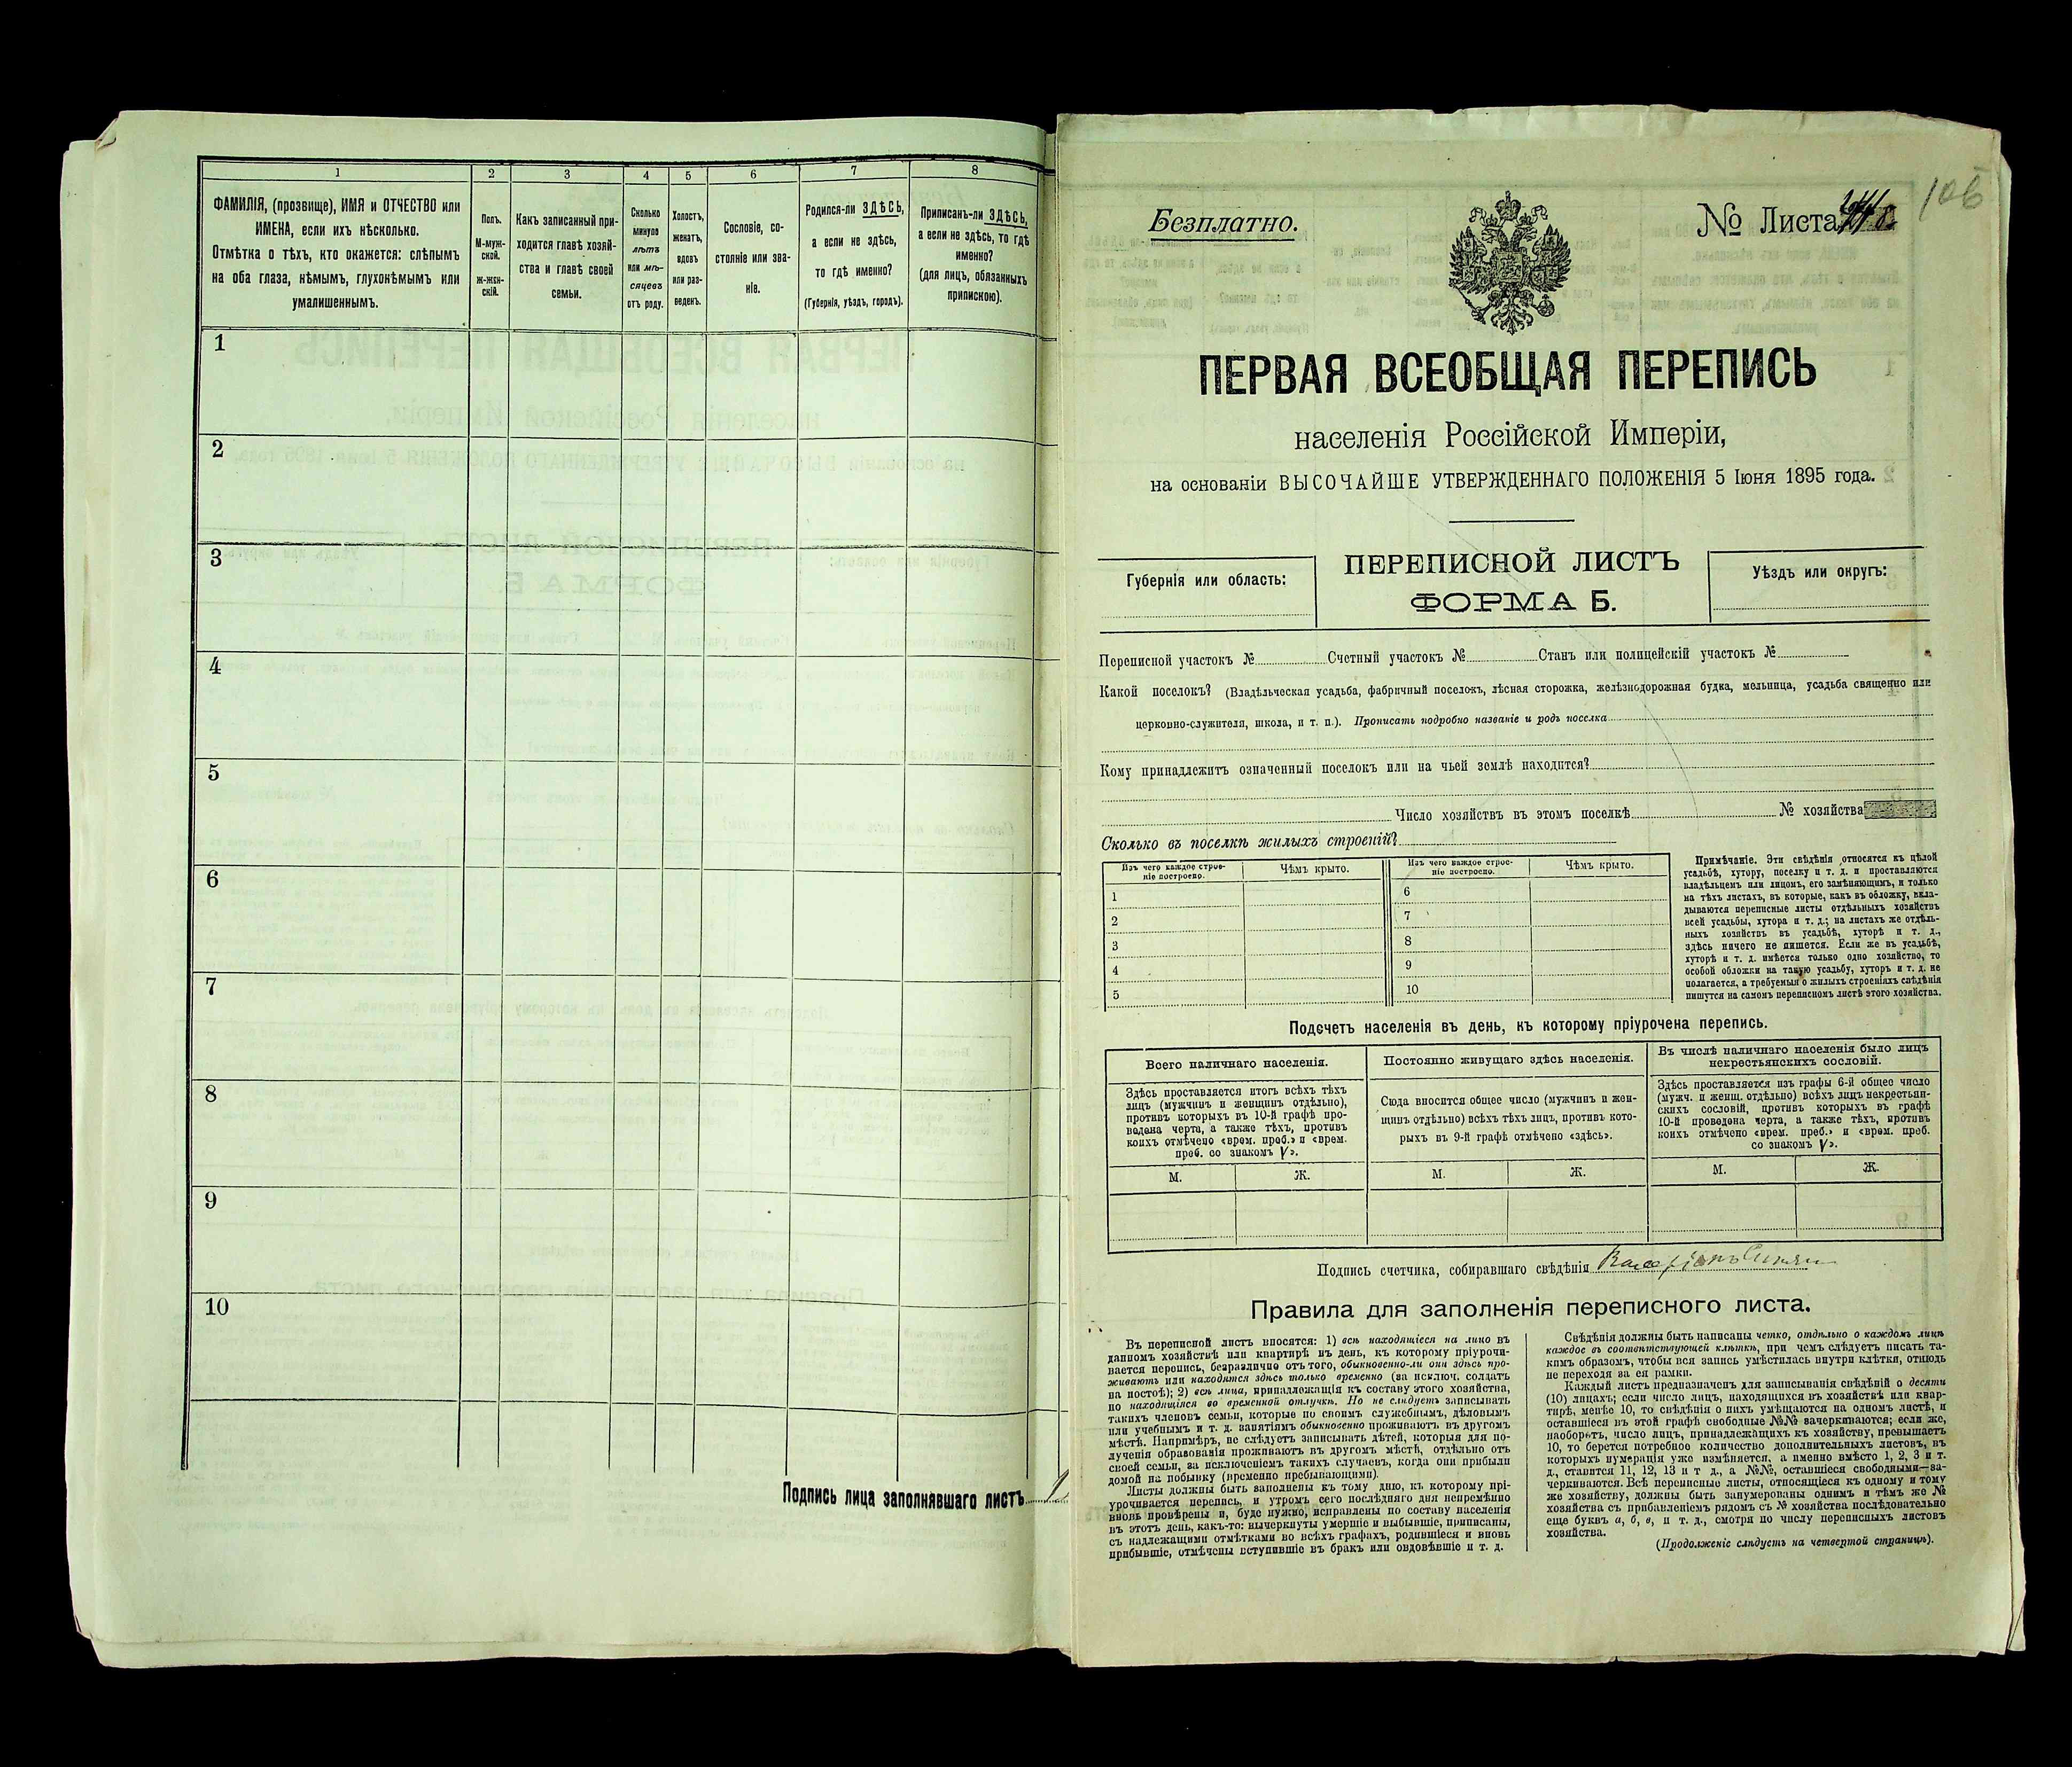 1 2 3 4 5 6 7 8
ФАМИЛІЯ, (прозвище), ИМЯ и ОТЧЕСТВО или
ИМЕНА, если ихъ нѣсколько.
Отмѣтка о тѣхъ, кто окажется: слѣпымъ
на оба глаза, нѣмымъ, глухонѣмымъ или
умалишеннымъ.
Полъ.
М-муж-
ской.
ж-жен-
скій.
Какъ записанный при-
ходится главѣ хозяй-
ства и главѣ своей
семьи.
Сколько
минуло
лѣтъ
или мѣ-
сяцевъ
отъ роду.
Холостъ,
женатъ,
вдовъ
или раз-
веденъ.
Сословіе, со-
стояніе или зва-
ніе.
Родился-ли ЗДѢСЬ,
а если не здѣсь,
то гдѣ именно?
(Губернія, уѣздъ, городъ).
Приписанъ-ли ЗДѢСЬ,
а если не здѣсь, то гдѣ
именно?
(для лицъ, обязанныхъ
припискою).
1
2
3
4
5
6
7
8
9
10
Подпись лица заполнявшаго листъ
106
Безплатно.
№ Листа
ПЕРВАЯ ВСЕОБЩАЯ ПЕРЕПИСЬ
населенія Россійской Имперіи,
на основаніи ВЫСОЧАЙШЕ УТВЕРЖДЕННАГО ПОЛОЖЕНІЯ 5 Іюня 1895 года.
Губернія или область:
ПЕРЕПИСНОЙ ЛИСТЪ
ФОРМА Б.
Уѣздъ или округъ:
Переписной участокъ № Счетный участокъ № Станъ или полицейскій участокъ №
Какой поселокъ? (Владѣльческая усадьба, фабричный поселокъ, лѣсная сторожка, желѣзнодорожная будка, мельница, усадьба священно или
церковно-служителя, школа, и т. п.). Прописать подробно названіе и родъ поселка
Кому принадлежитъ означенный поселокъ или на чьей землѣ находится?
Число хозяйствъ въ этомъ поселкѣ № хозяйства
Сколько въ поселкѣ жилыхъ строеній?
Изъ чего каждое строе-
ніе построено.
Чѣмъ крыто.
Изъ чего каждое строе-
ніе построено.
Чѣмъ крыто.
1 6
2 7
3 8
4 9
5 10
Примѣчаніе. Эти свѣдѣнія относятся къ цѣлой
усадьбѣ, хутору, поселку и т. д. и проставляются
владѣльцемъ или лицомъ, его замѣняющимъ, и только
на тѣхъ листахъ, въ которые, какъ въ обложку, вкла-
дываются переписные листы отдѣльныхъ хозяйствъ
всей усадьбы, хутора и т. д.; на листахъ же отдѣль-
ныхъ хозяйствъ въ усадьбѣ, хуторѣ и т. д.,
здѣсь ничего не пишется. Если же въ усадьбѣ,
хуторѣ и т. д. имѣется только одно хозяйство, то
особой обложки на такую усадьбу, хуторъ и т. д. не
полагается, а требуемыя о жилыхъ строеніяхъ свѣдѣнія
пишутся на самомъ переписномъ листѣ этого хозяйства.
Подсчетъ населенія въ день, къ которому пріурочена перепись.
Всего наличнаго населенія.
Здѣсь проставляется итогъ всѣхъ тѣхъ
лицъ (мужчинъ и женщинъ отдѣльно),
противъ которыхъ въ 10-й графѣ про-
ведена черта, а также тѣхъ, противъ
коихъ отмѣчено «врем. преб.» и «врем.
преб. со знакомъ V».
Постоянно живущаго здѣсь населенія.
Сюда вносится общее число (мужчинъ и жен-
щинъ отдѣльно) всѣхъ тѣхъ лицъ, противъ кото-
рыхъ въ 9-й графѣ отмѣчено «здѣсь».
Въ числѣ наличнаго населенія было лицъ
некрестьянскихъ сословій.
Здѣсь проставляется изъ графы 6-й общее число
(мужч. и женщ. отдѣльно) всѣхъ лицъ некрестьян-
скихъ сословій, противъ которыхъ въ графѣ
10-й проведена черта, а также тѣхъ, противъ
коихъ отмѣчено «врем. преб.» и «врем. преб.
со знакомъ V».
М. Ж. М. Ж. М. Ж.
Подпись счетчика, собиравшаго свѣдѣнія
Правила для заполненія переписного листа.
Въ переписной листъ вносятся: 1) всѣ находящіеся на лицо въ
данномъ хозяйствѣ или квартирѣ въ день, къ которому пріурочи-
вается перепись, безразлично отъ того, обыкновенно-ли они здѣсь про-
живаютъ или находятся здѣсь только временно (за исключ. солдатъ
на постоѣ); 2) всѣ лица, принадлежащія къ составу этого хозяйства,
но находящіяся во временной отлучкѣ. Но не слѣдуетъ записывать
такихъ членовъ семьи, которые по своимъ служебнымъ, дѣловымъ
или учебнымъ и т. д. занятіямъ обыкновенно проживаютъ въ другомъ
мѣстѣ. Напримѣръ, не слѣдуетъ записывать дѣтей, которыя для по-
лученія образованія проживаютъ въ другомъ мѣстѣ, отдѣльно отъ
своей семьи, за исключеніемъ такихъ случаевъ, когда они прибыли
домой на побывку (временно пребывающими).
Листы должны быть заполнены къ тому дню, къ которому прі-
урочивается перепись, и утромъ сего послѣдняго дня непремѣнно
вновь провѣрены и, буде нужно, исправлены по составу населенія
въ этотъ день, какъ-то: вычеркнуты умершіе и выбывшіе, приписаны,
съ надлежащими отмѣтками во всѣхъ графахъ, родившіеся и вновь
прибывшіе, отмѣчены вступившіе въ бракъ или овдовѣвшіе и т. д.
Свѣдѣнія должны быть написаны четко, отдѣльно о каждомъ лицѣ
каждое въ соотвѣтствующей клѣткѣ, при чемъ слѣдуетъ писать та-
кимъ образомъ, чтобы вся запись умѣстилась внутри клѣтки, отнюдь
не переходя за ея рамки.
Каждый листъ предназначенъ для записыванія свѣдѣній о десяти
(10) лицахъ; если число лицъ, находящихся въ хозяйствѣ или квар-
тирѣ, менѣе 10, то свѣдѣнія о нихъ умѣщаются на одномъ листѣ, и
оставшіеся въ этой графѣ свободные №№ зачеркиваются; если же,
наоборотъ, число лицъ, принадлежащихъ къ хозяйству, превышаетъ
10, то берется потребное количество дополнительныхъ листовъ, въ
которыхъ нумерація уже измѣняется, а именно вмѣсто 1, 2, 3 и т.
д., ставится 11, 12, 13 и т д., а №№, оставшіеся свободными—за-
черкиваются. Всѣ переписные листы, относящіеся къ одному и тому
же хозяйству, должны быть занумерованы однимъ и тѣмъ же №
хозяйства съ прибавленіемъ рядомъ съ № хозяйства послѣдовательно
еще буквъ а, б, в, и т. д., смотря по числу переписныхъ листовъ
хозяйства.
(Продолженіе слѣдуетъ на четвертой страницѣ).